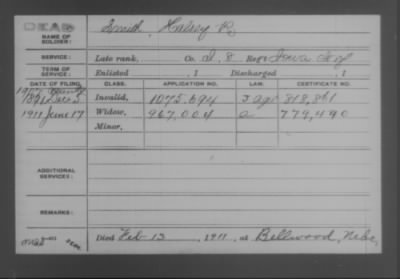 DEAD
NAME OF SOLDIER: Smith, Halsey R.
SERVICE: Late rank, Co. D, 8 Reg't Iowa Inf
TERM OF SERVICE: Enlisted , 1 Discharged , 1
DATE OF FILING. CLASS. APPLICATION NO. LAW. CERTIFICATE NO.
1891 Dec 5 Invalid, 1075.694 J age 818,861
1911 June 17 Widow, 967,004 a 779,490
Minor,
ADDITIONAL SERVICES:
REMARKS:
Died Feb 13, 1911, at Bellwood, Nebr,